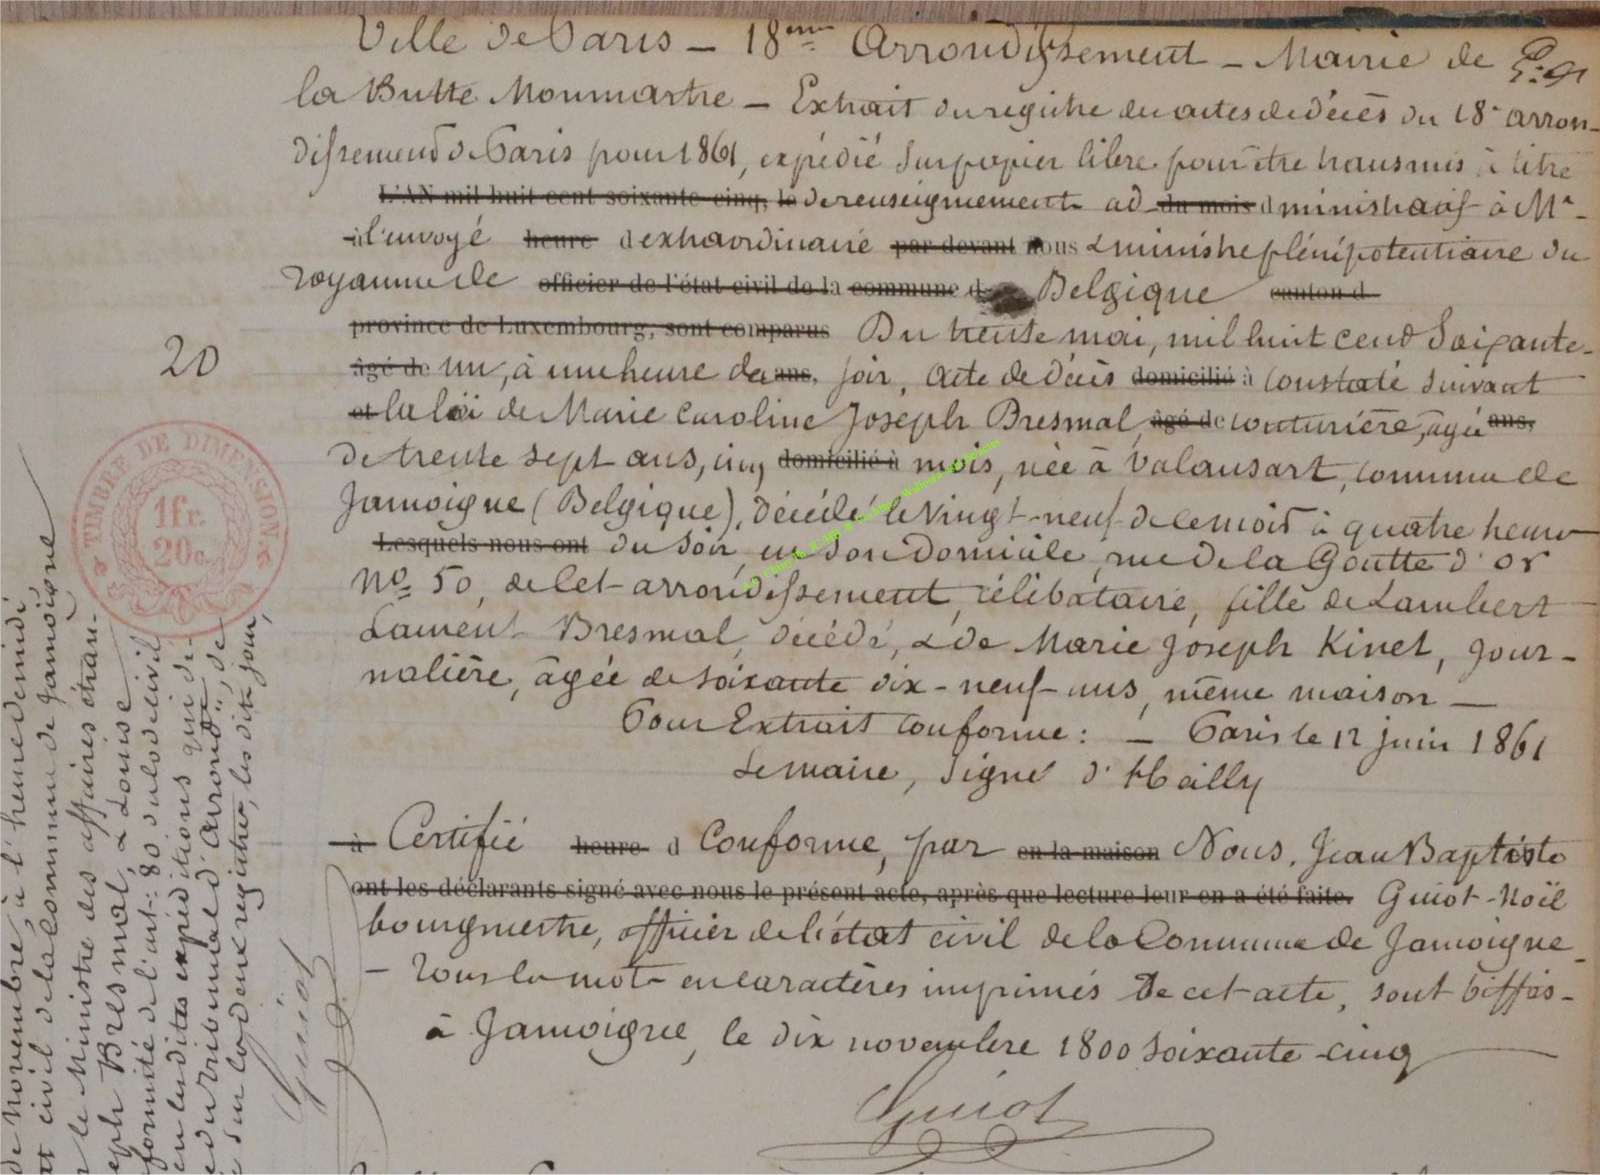 Ville de Paris — 18eme Arrondissement — Mairie de
la Butte Monmartre — Extrait du registre des actes de décès du 18e arron-
dissement de Paris pour 1861, expédié sur papier libre pour être transmis à titre
L'AN mil huit cent soixante-cinq, le de renseignement ad- du mois d ministratif à Mr
à l'envoyé heure d extraordinaire par devant nous & ministre plénipotentiaire du
royaume de officier de l'état civil de la commune d Belgique canton d
province de Luxembourg, sont comparus Du trente mai, mil huit cent soixante-
âgé de un, à une heure du ans, soir, acte de décès domicilié à constaté suivant
et la loi de Marie Caroline Joseph Bresmal, âgé de couturière, âgée ans,
de trente sept ans, cinq domicilié à mois, née à Valansart, commune de
Jamoigne (Belgique), décédé le vingt-neuf de ce mois à quatre heures
Lesquels nous ont du soir, en son domicile, rue de la Goutte d'or
No 50, de cet arrondissement, célibataire, fille de Lambert
Laurent Bresmal, décédé, & de Marie Joseph Kinet, jour-
nalière, âgée de soixante dix-neuf ans, même maison —
Pour Extrait conforme : — Paris le 12 juin 1861
Le maire, signé
à Certifié heure d Conforme, par en la maison Nous, Jean Baptiste
ont les déclarants signé avec nous le présent acte, après que lecture leur en a été faite. Guiot-Noël
bourgmestre, officier de l'état civil de la Commune de Jamoigne
— Tous les mots en caractères imprimés de cet acte, sont biffés —
à Jamoigne, le dix novembre 1800 soixante-cinq
Guiot
20
TIMBRE DE DIMENSION
1fr.
20c.
de novembre, à l'heure de midi
état civil de la commune de Jamoigne
le Ministre des affaires étran-
Joseph Bresmal, & Louise
formité de l'art: 80 du code civil
en lesdites expéditions qui de-
du tribunal d'arrondt, de
sur les deux registres, les dits jour,
Guiot